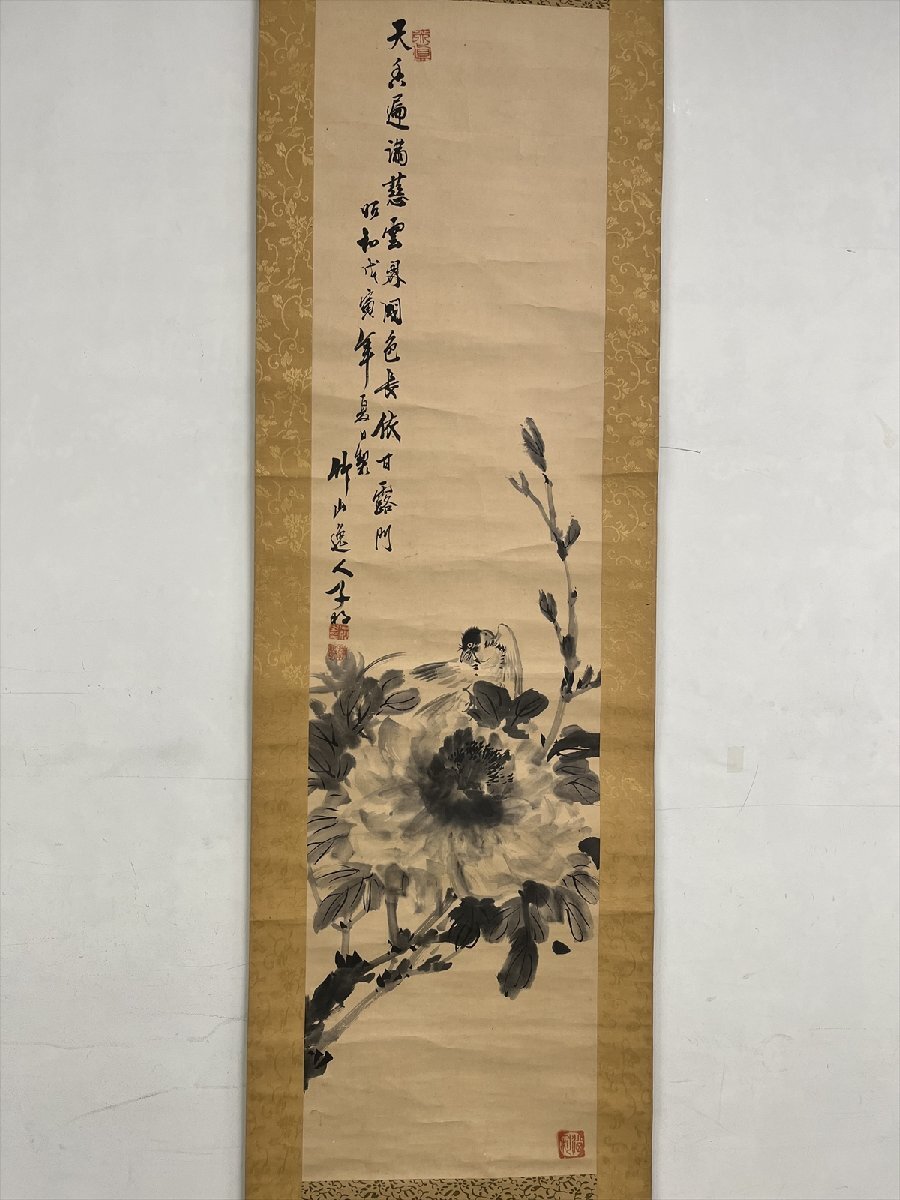 天香遍満慈雲界国色長依甘露門
昭和戊寅年夏日製
竹山逸人